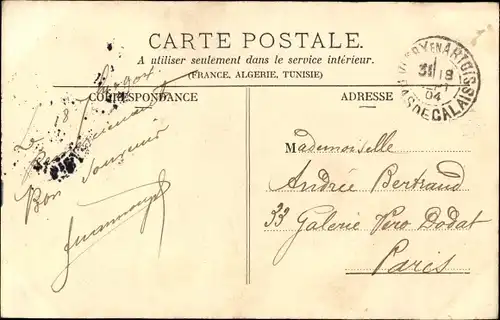 CARTE POSTALE.
A utiliser seulement dans le service intérieur.
(FRANCE, ALGERIE, TUNISIE)
CORRESPONDANCE
ADRESSE
18
Bon Souvenir
EN ARTOIS
PAS DE CALAIS
31
04
Mademoiselle
Andrée Bertrand
33 Galerie Vero Dodat
Paris